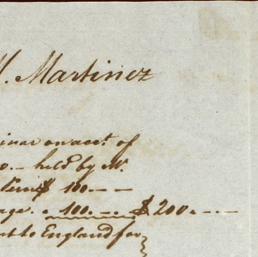 M. Martinez
on acct. of
0.— held by M.
$ 100.— —
age. . 100.— — $ 200.— — —
to England for